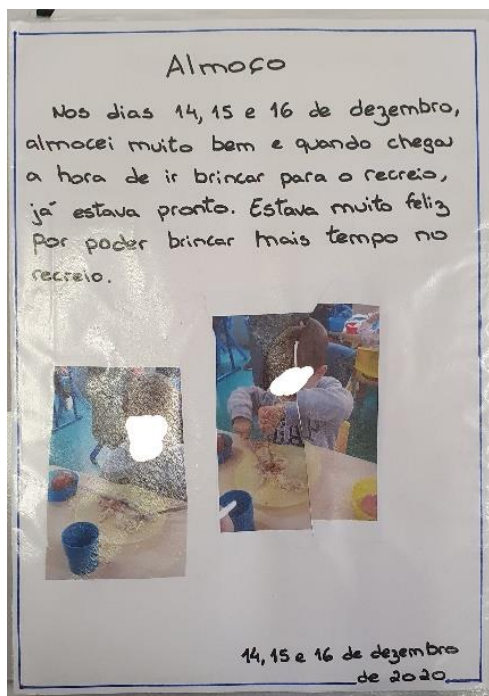 Almoço
Nos dias 14, 15 e 16 de dezembro,
almocei muito bem e quando chegou
a hora de ir brincar para o recreio,
já estava pronto. Estava muito feliz
por poder brincar mais tempo no
recreio.
14, 15 e 16 de dezembro
de 2020